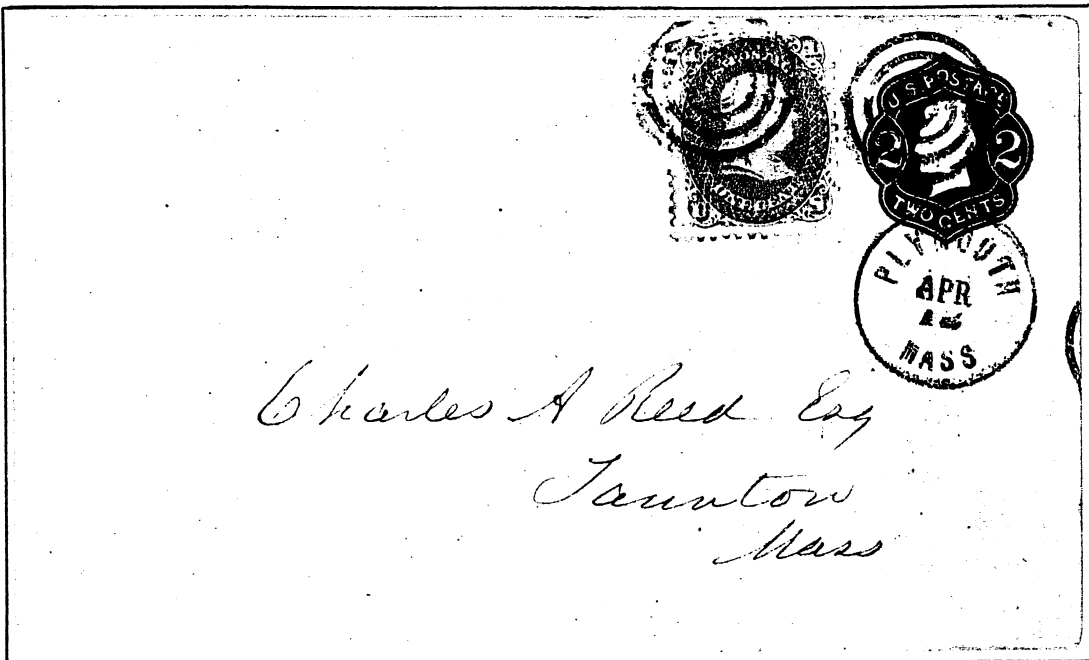 U.S. POSTAGE
2 2
TWO CENTS
PLYMOUTH
APR
MASS
Charles A Reed Esq
Taunton
Mass